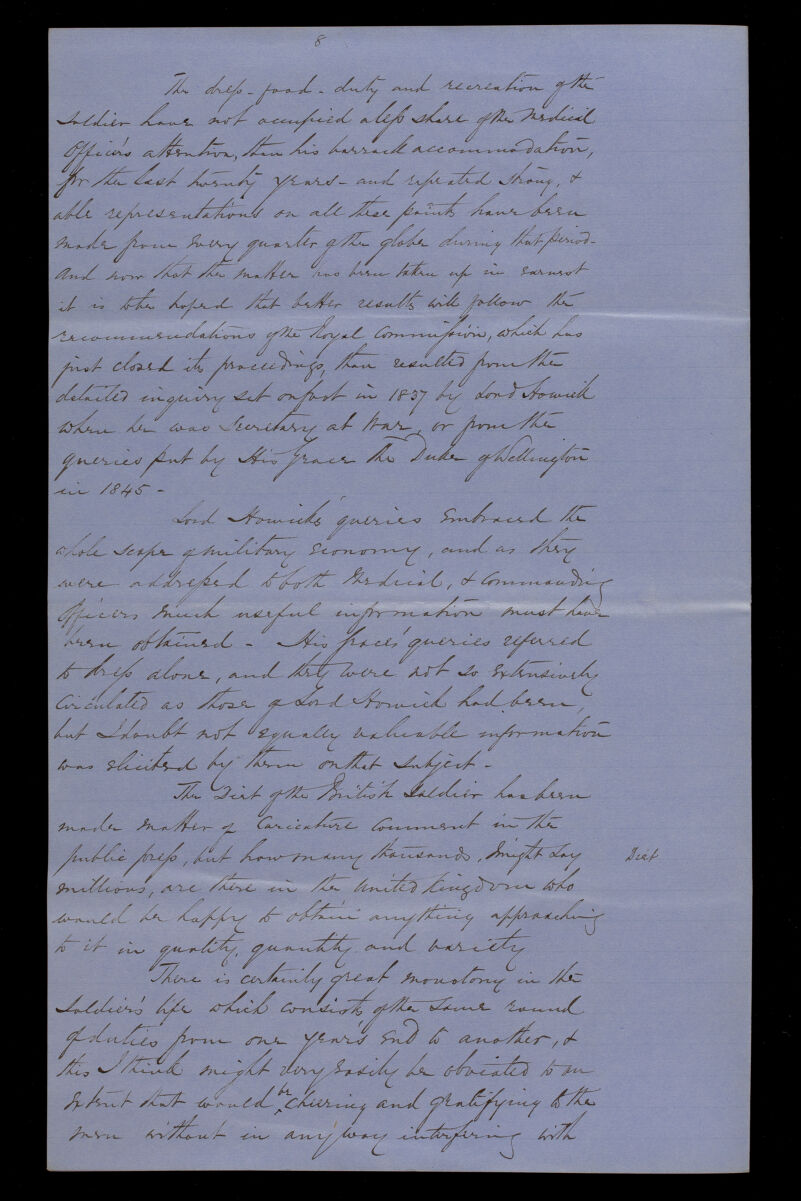 8
The dress - food - duty and recreation of the
Soldier have not occupied a less share of the Medical
Officers attention, than his barrack accommodation,
for the last twenty years - and repeated strong, &
able representations on all these points have been
made from every quarter of the globe during that period -
And now that the matter has been taken up in earnest
it is to be hoped that better results will follow the
recommendations of the Royal Commission, which has
just closed its proceedings, than resulted from the
detailed inquiry set on foot in 1837 by Lord Howick
when he was Secretary at War, or from the
queries put by His Grace the Duke of Wellington
in 1845 -
Lord Howick's queries embraced the
whole scope of military economy, and as they
were addressed to both Medical, & Commanding
Officers much useful information must have
been obtained - His Graces' queries referred
to dress alone, and they were not so extensively
circulated as those of Lord Howick had been,
but I doubt not equally valuable information
was elicited by them on that subject -
The Diet of the British Soldier has been
made matter of Caricature Comment in the
public press, but how many thousands, I might say
Diet
millions, are there in the United Kingdom who
would be happy to obtain anything approaching
to it in quality, quantity and variety
There is certainly great monotony in the
Soldier's life which consists of the same round
of duties from one year's end to another, &
this I think might very easily be obviated to an
extent that would be cheering and gratifying to the
men without in any way interfering with